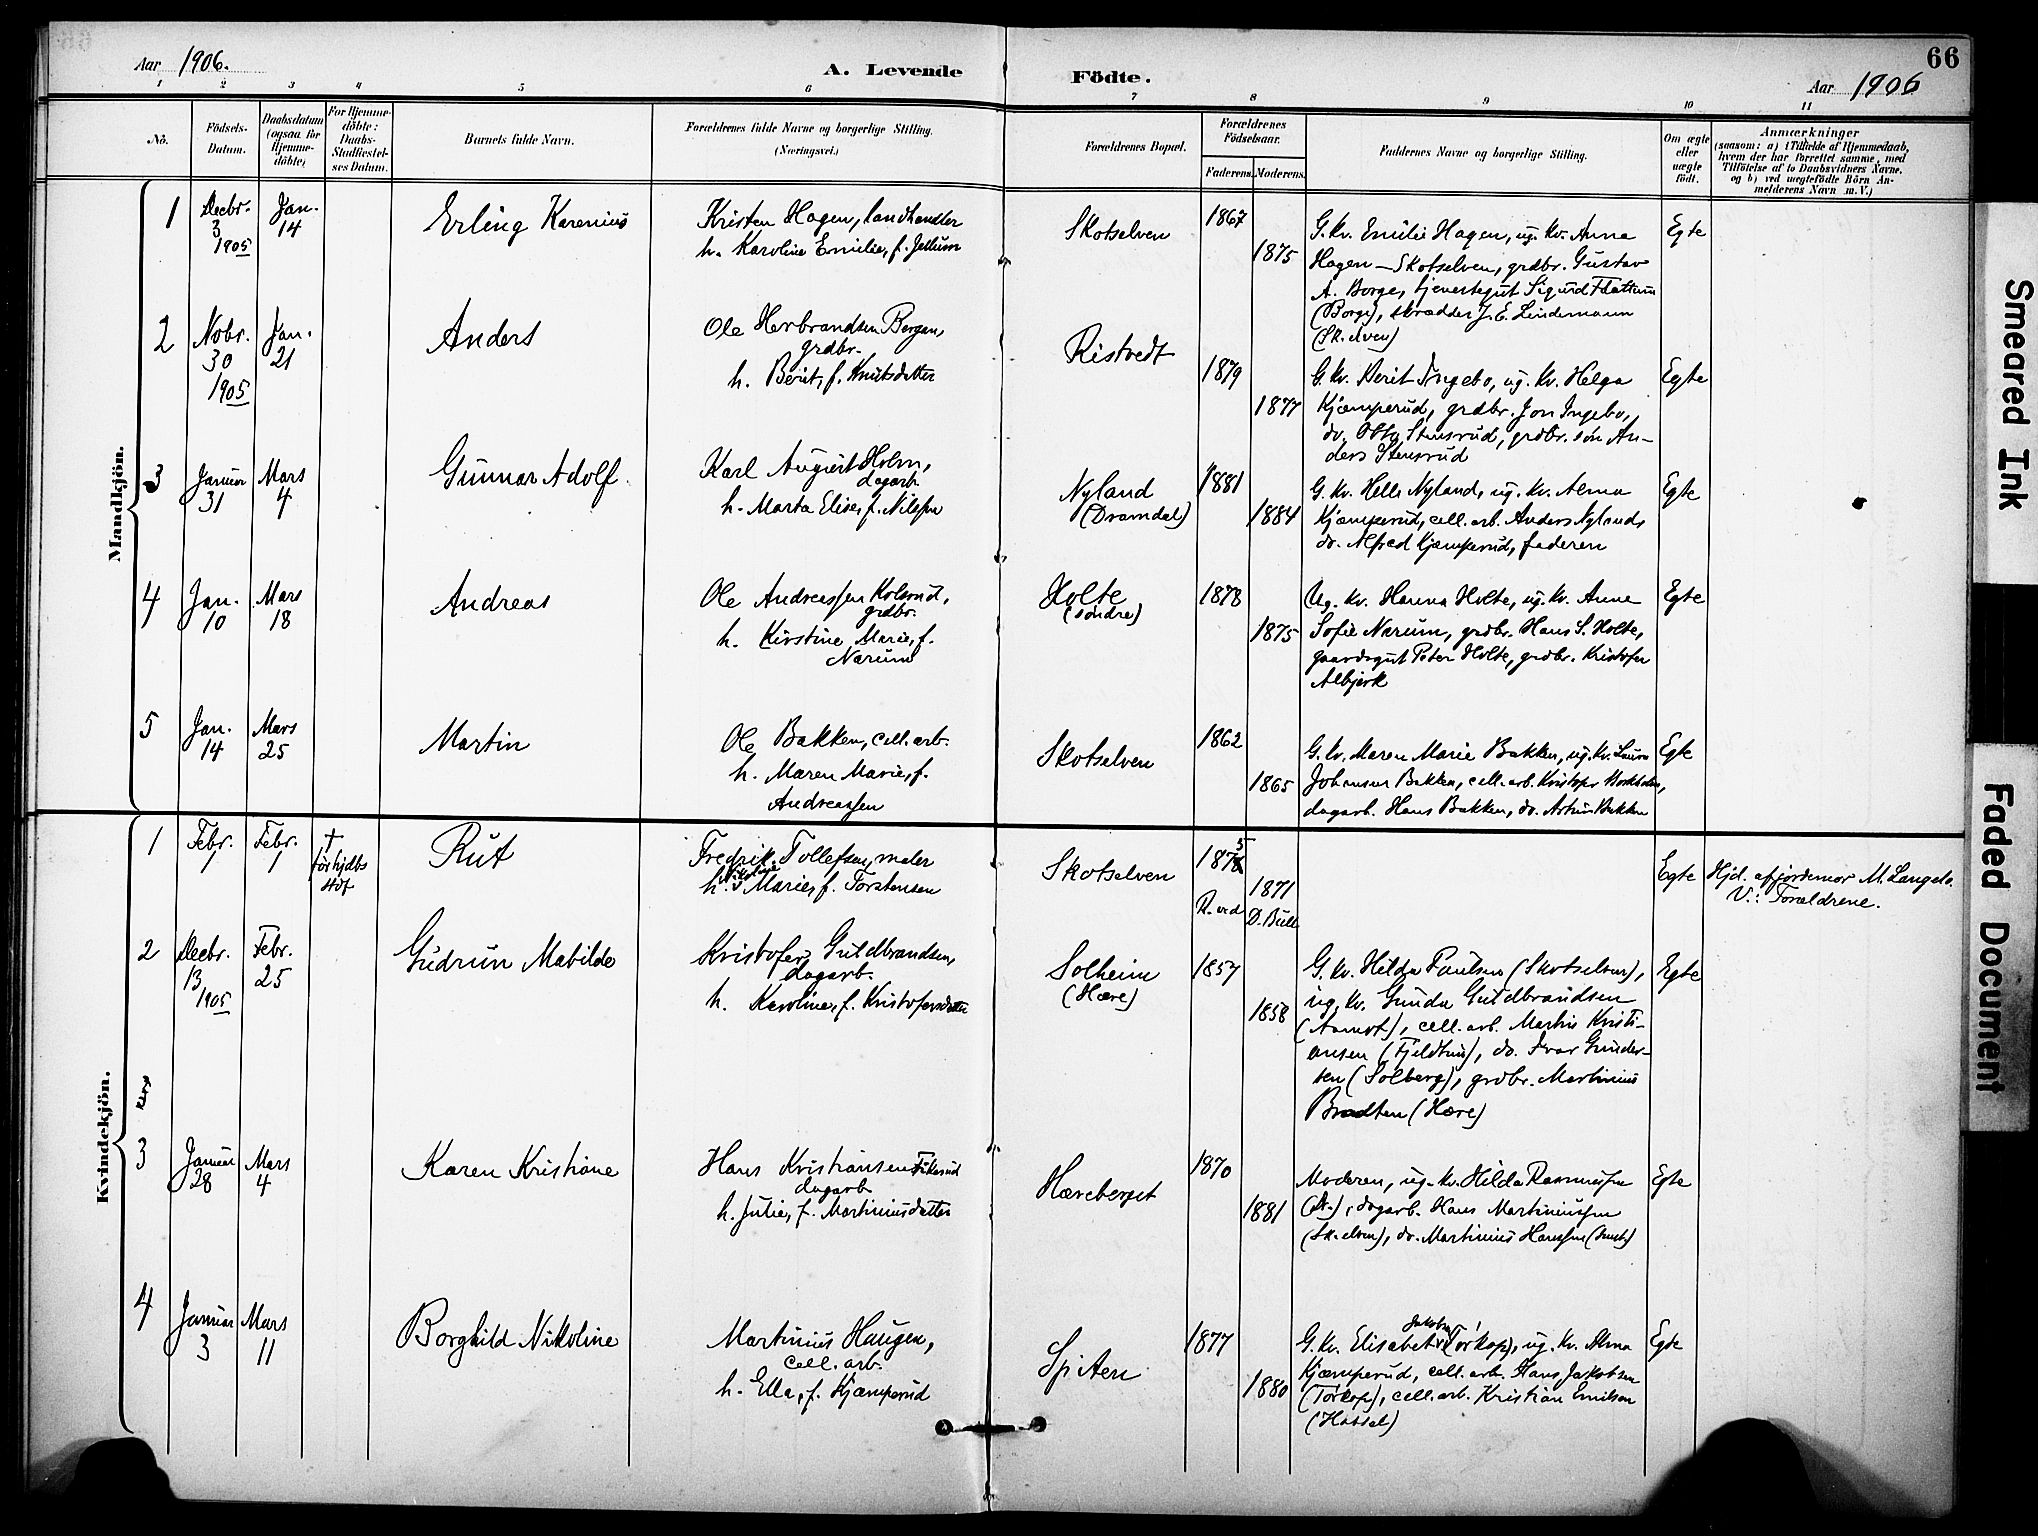 66
Aar 1906.
A. Levende
Födte.
Aar 1906
1 2 3 4 5 6 7 8 9 10 11
No.
Födsels-
Datum.
Daabsdatum
(ogsaa for
Hjemme-
döbte)
For Hjemme-
döbte:
Daabs-
Stadfæstel-
ses Datum.
Barnets fulde Navn.
Forældrenes fulde Navne og borgerlige Stilling.
(Næringsvei.)
Forældrenes Bopæl.
Forældrenes
Födselsaar.
Faderens. Moderens.
Faddernes Navne og borgerlige Stilling.
Om ægte
eller
uægte
födt.
Anmærkninger
(saasom: a) i Tilfælde af Hjemmedaab,
hvem der har forrettet samme, med
Tilföielse af to Daabsvidners Navne.
og b) ved uægtefödte Börn An-
melderens Navn m. V.)
Mandkjön.
1
Decbr.
3
1905
Jan.
14
Erling Karenius
Kristen Hagen, landhandler
h. Karoline Emilie, f. Jellum
Skotselven
1867
1875
G. kv. Emilie Hagen, ug. kv. Anna
Hagen - Skotselven, grdbr. Gustav
A. Borge, tjenestegut Sigurd Flattum
(Borge), skrædder J. E. Lindemann
(Sk.elven)
Egte
2
Nobr.
30
1905
Jan.
21
Anders
Ole Herbrandsen Bergan,
grdbr.
h. Berit, f. Knutsdatter
Ristvedt
1879
1877
G. kv. Berit Ingebo, ug. kv. Helga
Kjæmperud, grdbr. Jon Ingebo,
do. Otto Stensrud, grdbr. søn An-
ders Stensrud
Egte
3
Januar
31
Mars
4
Gunnar Adolf
Karl August Holm,
dagarb.
h. Marta Elise, f. Nilssen
Nyland
(Dramdal)
1881
1884
G. kv. Helle Nyland, ug. kv. Alma
Kjæmperud, cell. arb. Anders Nyland,
do. Alfred Kjæmperud, faderen
Egte
4
Jan.
10
Mars
18
Andreas
Ole Andreassen Kolsrud,
grdbr.
h. Kirstine Marie, f.
Narum
Holte
(søndre)
1878
1875
Ug. kv. Hanna Holte, ug. kv. Anna
Sofie Narum, grdbr. Hans S. Holte,
gaardsgut Peter Holte, grdbr. Kristofer
Albjerk
Egte
5
Jan.
14
Mars
25
Martin
Ole Bakken, cell. arb.
h. Maren Marie, f.
Andreassen
Skotselven
1862
1865
G. kv. Maren Marie Bakken, ug. kv. Laura
Johansen Bakken, cell. arb. Kristofer
dagarb. Hans Bakken, do. Bakken
Egte
Kvindekjön.
1
Febr.
1
Febr.
1
†
før hjdbs
stdf
Rut
Fredrik Tollefsen, maler
h. Nikoline Marie, f. Torstensen
Skotselven
1875
R. ved
1871
D. Bull
Egte
Hjd. af jordemor M. Langelo.
V.: Forældrene.
2
Decbr.
13
1905
Febr.
25
Gudrun Mabilde
Kristofer Guldbrandsen,
dagarb.
h. Karoline, f. Kristofersdatter
Solheim
(Hære)
1857
1858
G. kv. Hilda Paulsen (Skotselven),
ug. kv. Gunda Guldbrandsen
(Aamot), cell. arb. Martin Kristi-
ansen (Fjeldtun), do. Ivar Gunder-
sen (Solberg), grdbr. Martinius
Braaten (Hære)
Egte
3
Januar
28
Mars
4
Karen Kristiane
Hans Kristiansen Fikerud
dagarb.
h. Julie, f. Martiniusdatter
Hæreberget
1870
1881
Moderen, ug. kv. Hilda Rasmussen
, dagarb. Hans Martiniussen
(Sk.elven), do. Martinius Hanssen
Egte
4
Januar
3
Mars
11
Borghild Nikoline
Martinius Haugen,
cell. arb.
h. Ella, f. Kjæmperud
Spiten
1877
1880
G. kv. Elisabet Jakobsen (Torkop), ug. kv. Alma
Kjæmperud, cell. arb. Hans Jakobsen
(Torkop), cell. arb. Kristian Emilson
(Hassel)
Egte
Smeared Ink
Faded Document